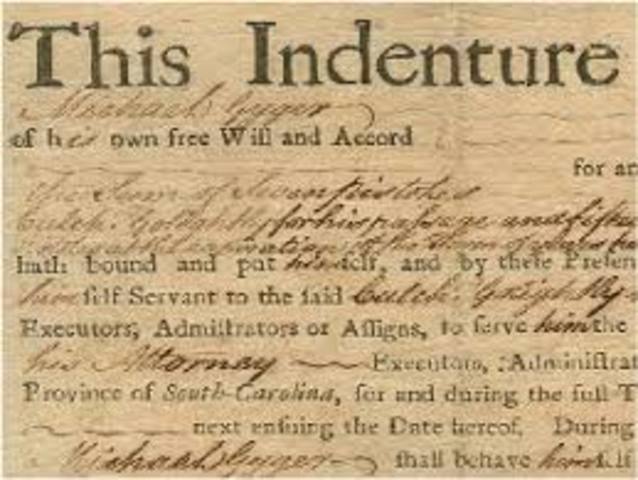 This Indenture
Michael Gyger
of his own free Will and Accord
for an
the Sum of Seven pistoles
Culch: Golightly for his passage and fifte
expiration of the Term of years
hath bound and put himself, and by these Presen
himself Servant to the said Culch: Golightly
Executors, Admistrators or Assigns, to serve him the
his Attorney Executors, Administrat
Province of South-Carolina, for and during the full T
next ensuing the Date hereof. During
Michael Gyger shall behave himself